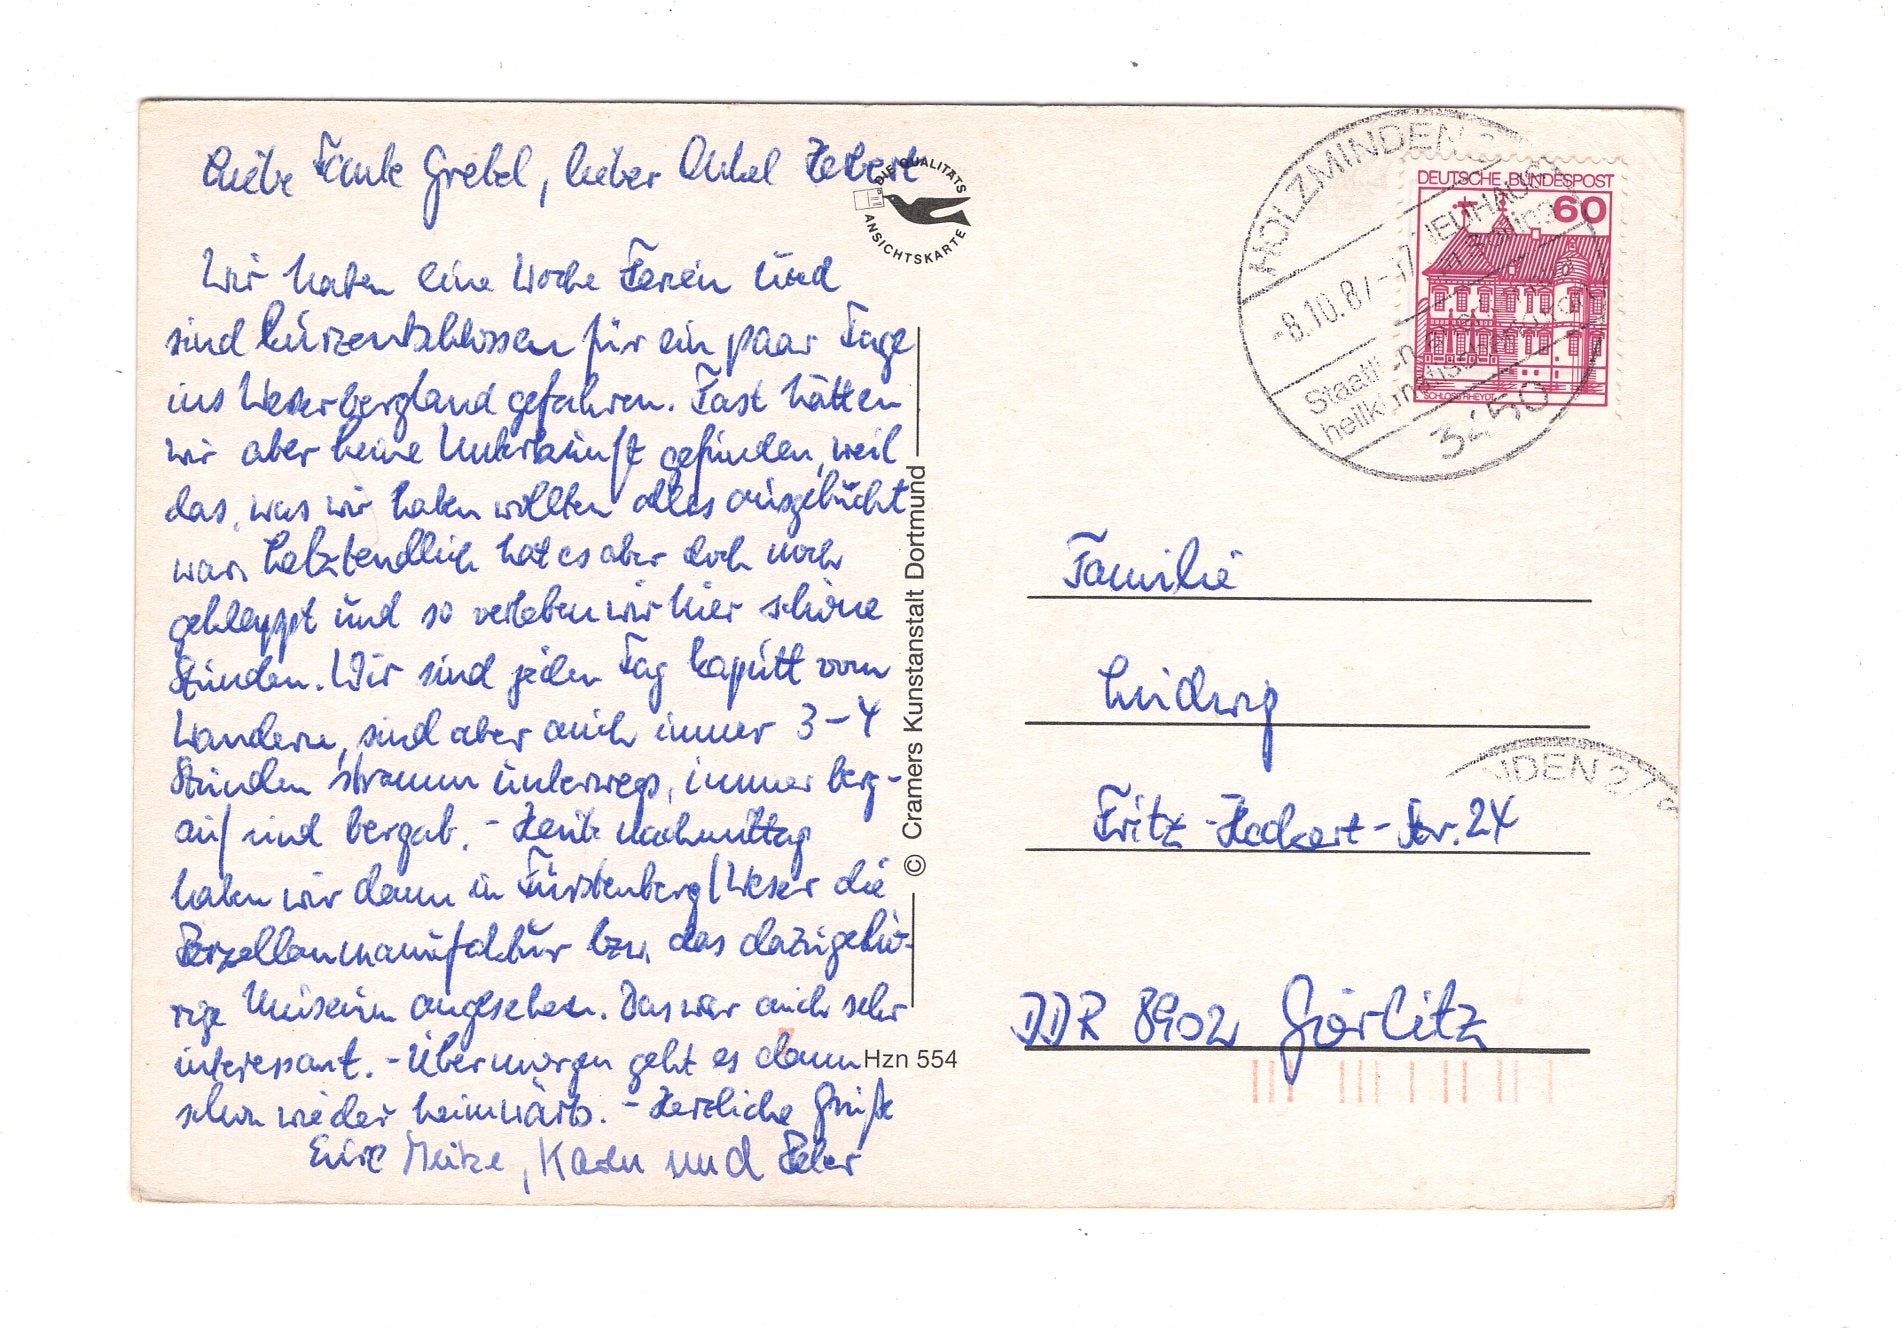 Liebe Tante Gretel, lieber Onkel Hebert
Wir haben eine Woche Ferien und
sind kurzentschlossen für ein paar Tage
ins Weserbergland gefahren. Fast hätten
wir aber keine Unterkunft gefunden, weil
das, was wir haben wollten alles ausgebucht
war. Letztendlich hat es aber doch noch
geklappt und so verleben wir hier schöne
Stunden. Wir sind jeden Tag kaputt vom
Wandern, sind aber auch immer 3-4
Stunden stramm unterwegs, immer berg-
auf und bergab. - Heute nachmittag
haben wir dann in Fürstenberg/Weser die
Porzellanmanufaktur bzw. das dazugehö-
rige Museum angesehen. Das war auch sehr
interessant. - Übermorgen geht es dann
schon wieder heimwärts. - Herzliche Grüße
Eure Karin und Peter
DIE QUALITÄTS
ANSICHTSKARTE
© Cramers Kunstanstalt Dortmund
Hzn 554
HOLZMINDEN
-8.10.87-17
NEUHAUS
im Solling
Staatl.
heilklimatischer
3450
DEUTSCHE BUNDESPOST
60
SCHLOSS RHEYDT
Familie
Ludwig
NDEN 2
Fritz-Heckert-Str. 24
DDR 8902 Görlitz